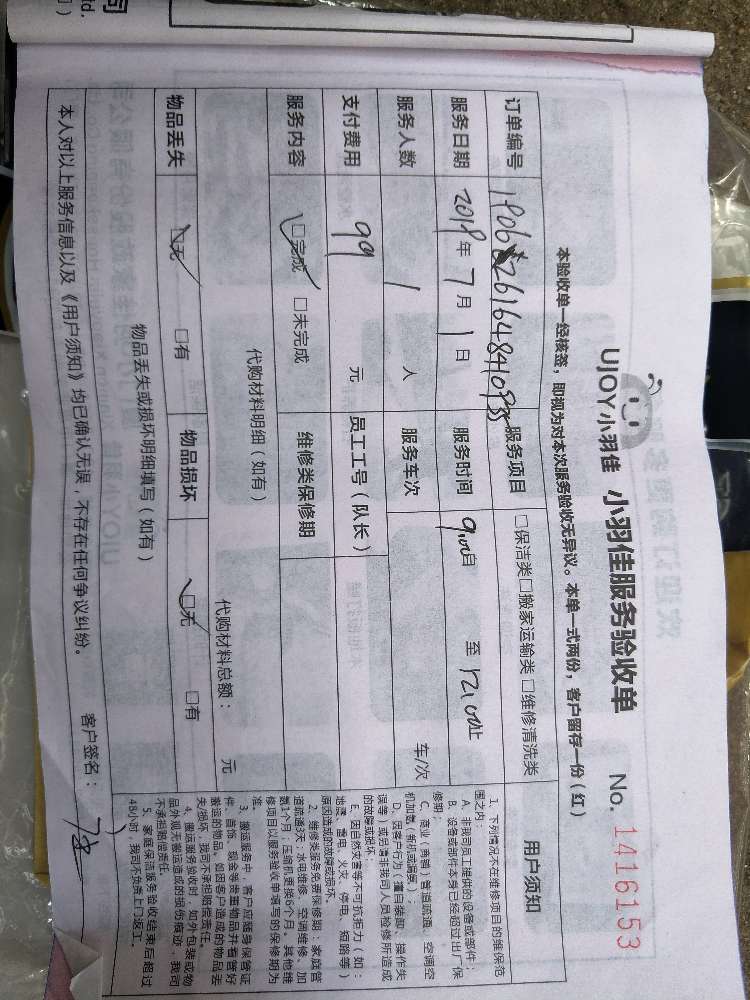 司
td.
UJOY小羽佳 小羽佳服务验收单 No. 1416153
本验收单一经核签，即视为对本次服务验收无异议。本单一式两份，客户留存一份（红）
订单编号 服务项目 □保洁类□搬家运输类□维修清洗类
服务日期 2018年7月1日 服务时间 9:00自 至 12:00止
服务人数 1 人 服务车次 车/次
支付费用 99 元 员工工号（队长）
服务内容 □完成 □未完成 维修类保修期
代购材料明细（如有）
代购材料总额： 元
物品丢失 □无 □有 物品损坏 □无 □有
物品丢失或损坏明细填写（如有）
本人对以上服务信息以及《用户须知》均已确认无误，不存在任何争议纠纷。
客户签名：
用户须知
1、下列情况不在维修项目的维保范
围之内：
A、非我司员工提供的设备或部件；
B、设备或部件本身已经超过出厂保
修期；
C、商业（商铺）管道疏通、空调空
机加氨（拆机或漏氨）；
D、因客户行为（擅自装卸、操作失
误等）或另请非我司人员检修所造成
的故障或损坏；
E、因自然灾害等不可抗拒力（如：
地震、雷电、火灾、停电、短路等）
原因造成的故障或损坏。
2、维修类服务免费保修期：家庭管
道疏通3天，水电维修、空调维修、加
氨1个月，压缩机更换6个月。其他维
修项目以服务验收单填写的保修期为
准。
3、搬运服务中，客户应随身保管证
件、首饰、现金等贵重物品并看管好
搬运的物品。如因客户造成的物品丢
失/损坏，我司不承担赔偿责任。
4、搬运服务验收时，如外包装或物
品外观无搬运造成的损伤痕迹，我司
不承担赔偿责任。
5、家庭保洁服务验收结束后超过
48小时，我司不负责上门返工。